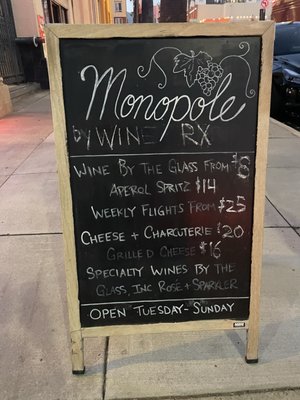 Monopole
by WINE RX
WINE BY THE GLASS FROM $8
APEROL SPRITZ $14
WEEKLY FLIGHTS FROM $25
CHEESE + CHARCUTERIE $20
GRILLED CHEESE $16
SPECIALTY WINES BY THE
GLASS, INC ROSÉ + SPARKLER
OPEN TUESDAY - SUNDAY